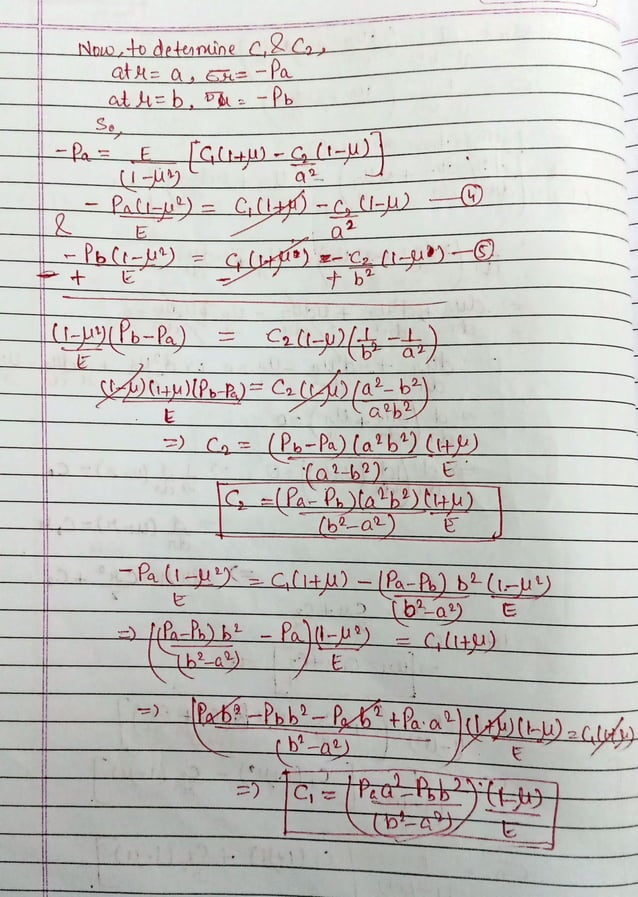 Now, to determine C₁ & C₂,
at r = a, σr = -Pa
at r = b, σr = -Pb
So,
-Pa = E/(1-μ²) [C₁(1+μ) - C₂/a² (1-μ)]
- Pa(1-μ²)/E = C₁(1+μ) - C₂/a² (1-μ) — ④
&
- Pb(1-μ²)/E = C₁(1+μ) - C₂/b² (1-μ) — ⑤
- + - +
(1-μ²)/E (Pb-Pa) = C₂(1-μ)(1/b² - 1/a²)
(1-μ)(1+μ)(Pb-Pa)/E = C₂(1-μ)(a²-b²)/(a²b²)
=> C₂ = (Pb-Pa)(a²b²)/(a²-b²) (1+μ)/E
C₂ = (Pa-Pb)(a²b²)/(b²-a²) (1+μ)/E
-Pa(1-μ²)/E = C₁(1+μ) - (Pa-Pb)b²/(b²-a²) (1-μ²)/E
=> ((Pa-Pb)b²/(b²-a²) - Pa)(1-μ²)/E = C₁(1+μ)
=> ((Pab² - Pbb² - Pab² + Pa·a²)/(b²-a²)) (1+μ)(1-μ)/E = C₁(1+μ)
=> C₁ = ((Paa² - Pbb²)/(b²-a²))·(1-μ)/E